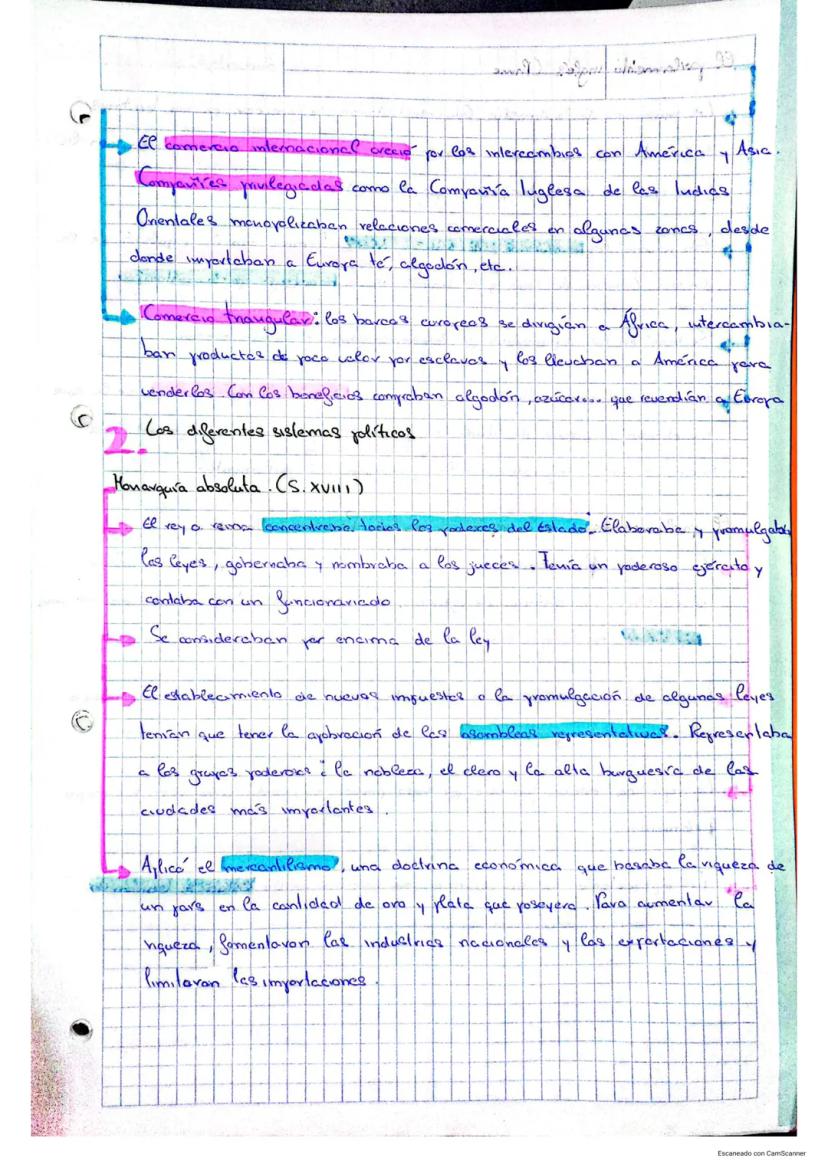 El comercio internacional creció por los intercambios con América y Asia.
Compañías privilegiadas como la Compañía Inglesa de las Indias
Orientales monopolizaban relaciones comerciales en algunas zonas, desde
donde importaban a Europa té, algodón, etc.
Comercio triangular: los barcos europeos se dirigían a África, intercambia-
ban productos de poco valor por esclavos y los llevaban a América para
venderlos. Con los beneficios compraban algodón, azúcar... que revendían a Europa
2. Los diferentes sistemas políticos
Monarquía absoluta. (S. XVIII)
El rey o reina concentraba todos los poderes del Estado. Elaboraba y promulgaba
las leyes, gobernaba y nombraba a los jueces. Tenía un poderoso ejército y
contaba con un funcionariado
Se consideraban por encima de la ley
El establecimiento de nuevos impuestos o la promulgación de algunas leyes
tenían que tener la aprobación de las asambleas representativas. Representaba
a los grupos poderosos: la nobleza, el clero y la alta burguesía de las
ciudades más importantes.
Aplicó el mercantilismo, una doctrina económica que basaba la riqueza de
un país en la cantidad de oro y plata que poseyera. Para aumentar la
riqueza, fomentaron las industrias nacionales y las exportaciones y
limitaron las importaciones.
Escaneado con CamScanner